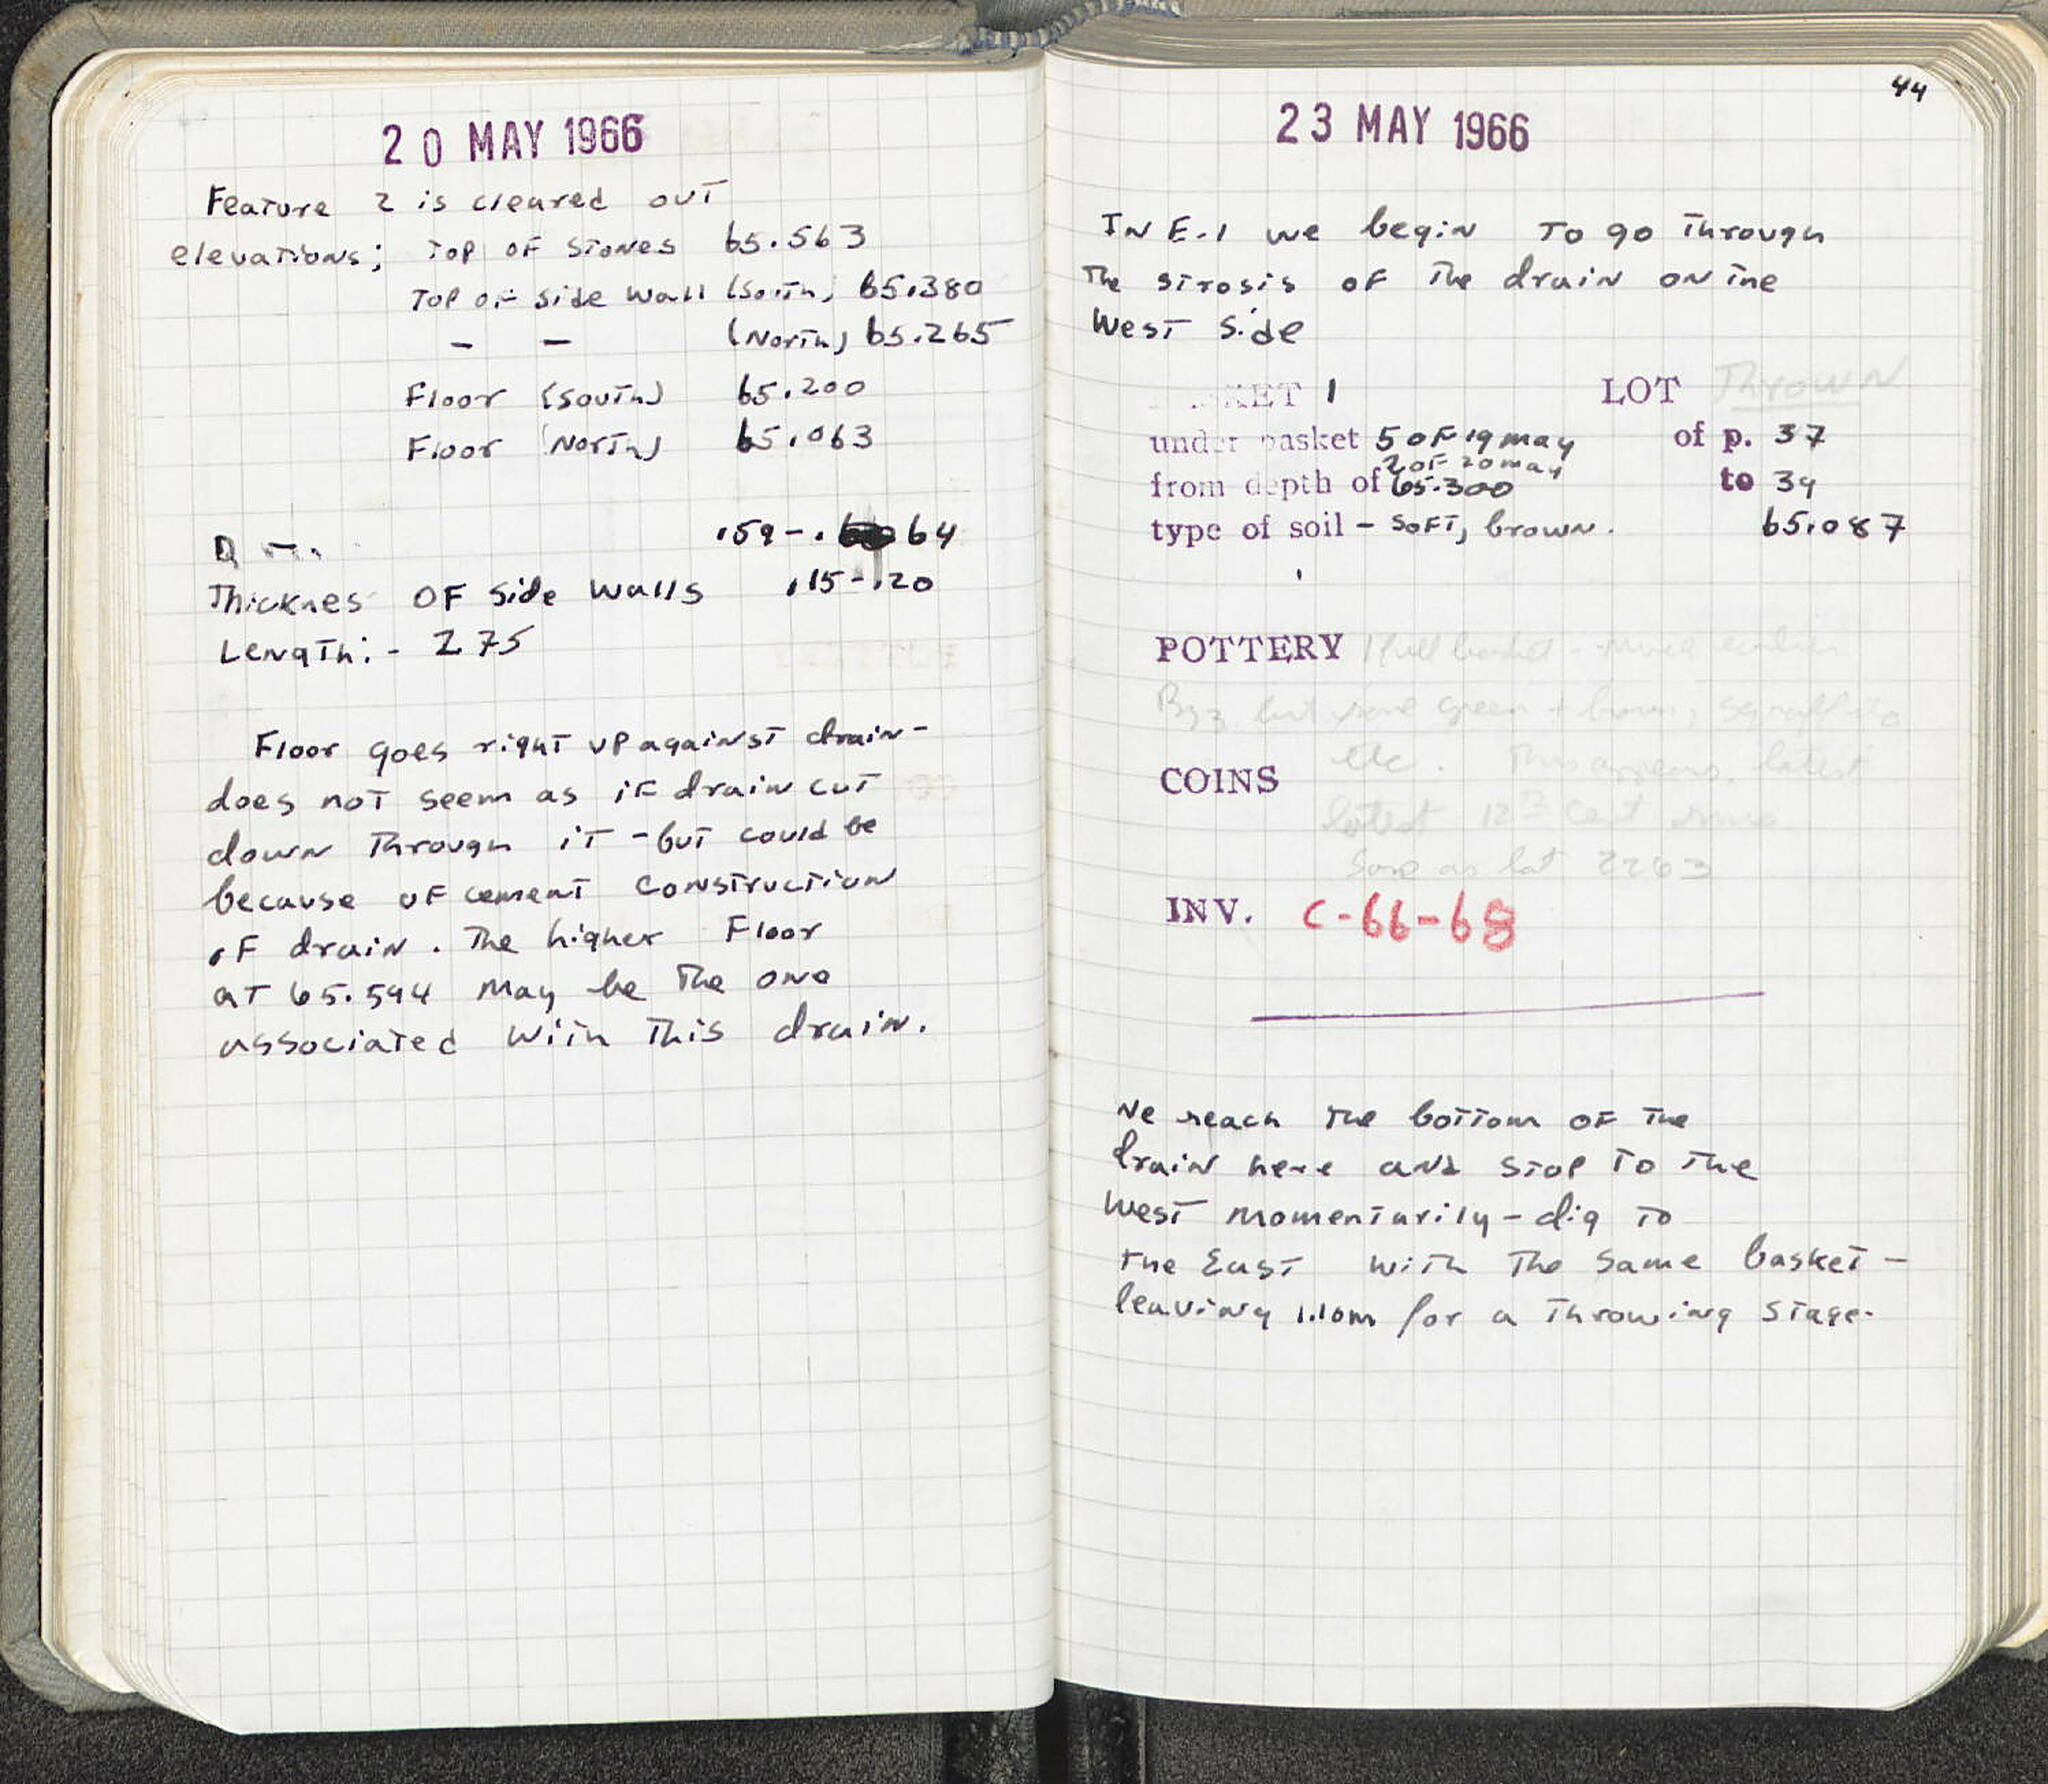 20 MAY 1966
Feature 2 is cleared out
elevations; Top of stones 65.563
Top of side wall (South) 65.380
— — (North) 65.265
Floor (South) 65.200
Floor (North) 65.063
.59 - . 64
Thicknes of side walls .15 - .20
Length: - 2.75
Floor goes right up against drain -
does not seem as if drain cut
down through it - but could be
because of cement construction
of drain. The higher Floor
at 65.594 may be the one
associated with this drain.
44
23 MAY 1966
In E.1 we begin to go through
the strosis of the drain on the
West side
1 LOT Thrown
under basket 5 of 19 may of p. 37
2 of 20 may
from depth of 65.300 to 39
type of soil - soft, brown. 65.087
POTTERY 1 full basket - much earlier
Byz. but some green + brown, sgraffito
etc. This appears latest
COINS
latest 12th cent
Same as lot 2263
INV. C-66-68
We reach the bottom of the
drain here and stop to the
West momentarily - dig to
the East with the same basket -
leaving 1.10m for a throwing stage.